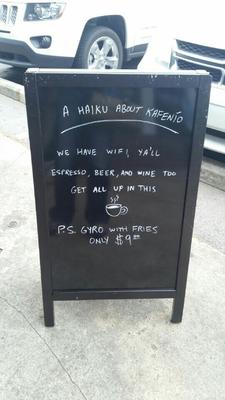 A HAIKU ABOUT KAFENÍO
WE HAVE WIFI, YA'LL
ESPRESSO, BEER, AND WINE TOO
GET ALL UP IN THIS
P.S. GYRO WITH FRIES
ONLY $9⁰⁰